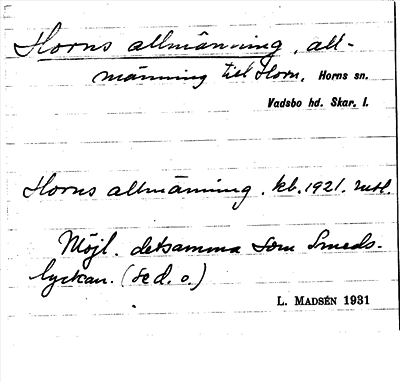 Horns allmänning, all-
männing till Horn. Horns sn.
Vadsbo hd. Skar. l.
Horns allmänning. kb. 1921. rutl.
Möjl. detsamma som Smeds-
lyckan. (se d. o.)
L. MADSÉN 1931